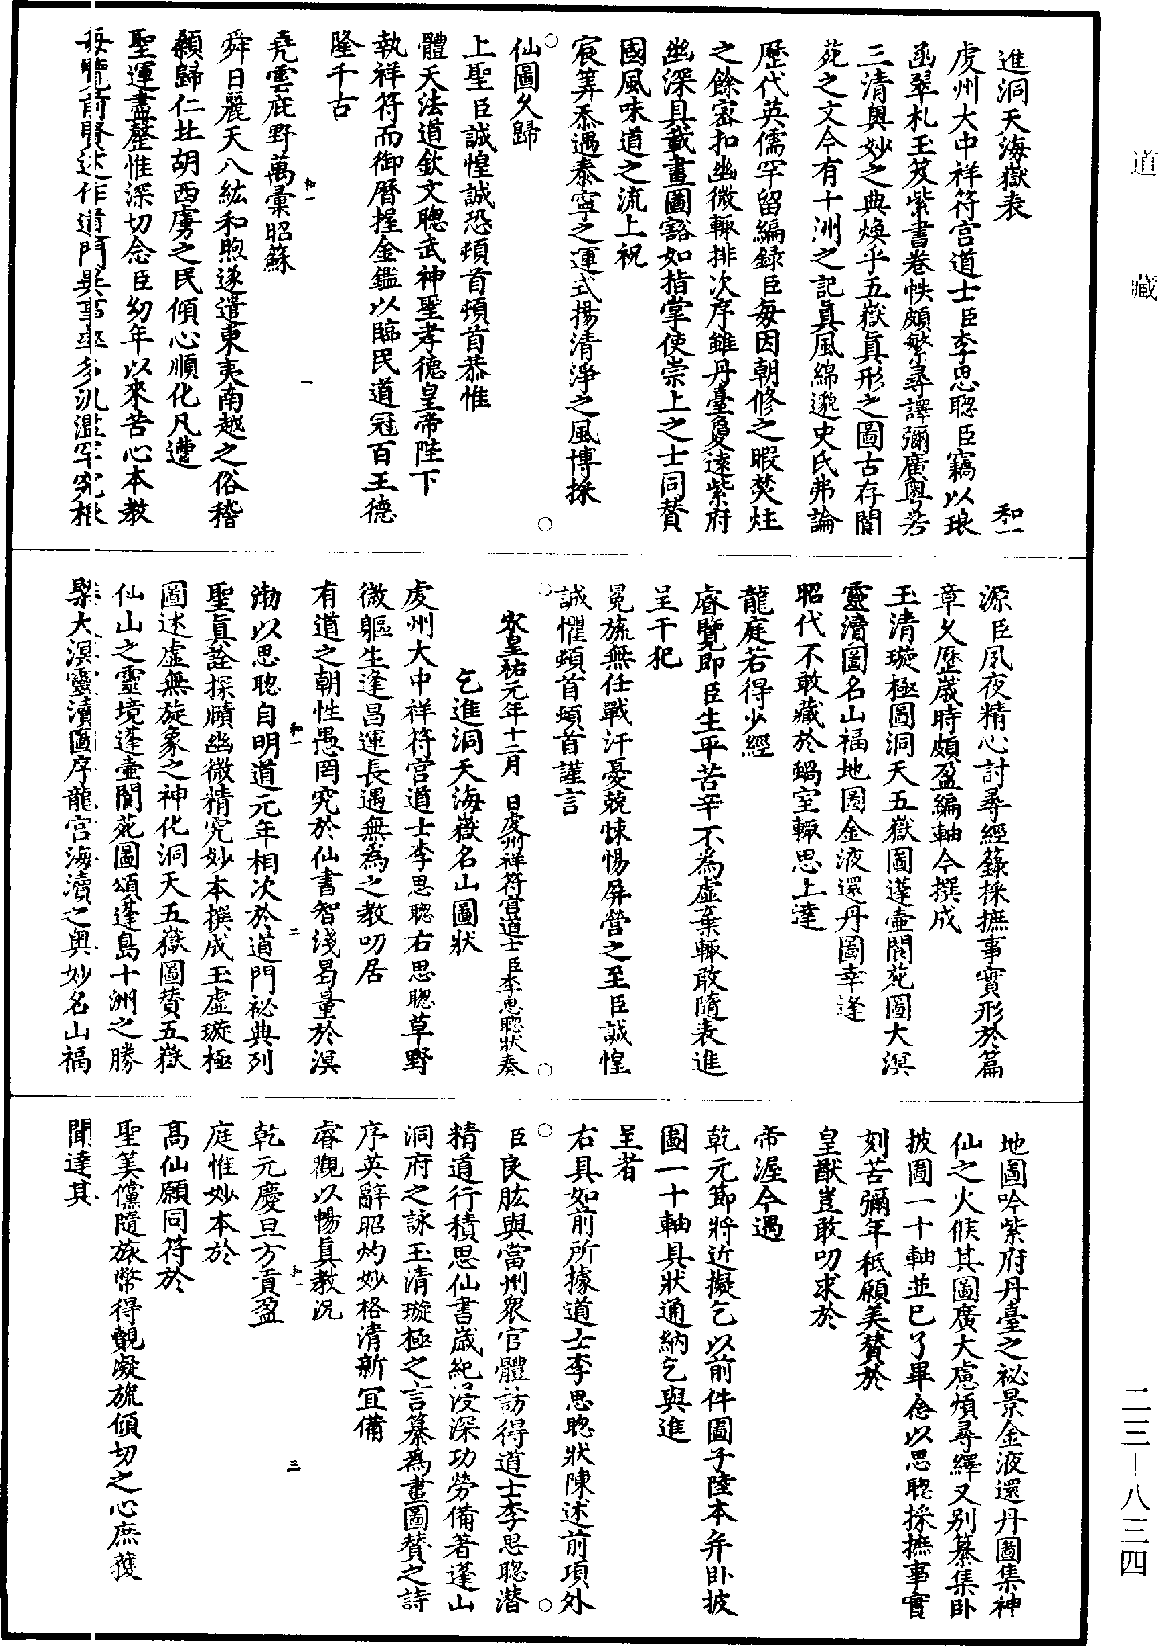 道藏
進洞天海嶽表
和一
虔州大中祥符宮道士臣李思聰臣竊以琅
函翠札玉笈紫書卷帙頗繁尋譯彌廣粤若
三清奧妙之典煥乎五嶽真形之圖古存閬
苑之文今有十洲之記真風綿邈史氏弗論
歷代英儒罕留編録臣每因朝修之暇焚炷
之餘密扣幽微輙排次序雖丹臺敻遠紫府
幽深具載畫圖豁如指掌使崇上之士同賛
國風味道之流上祝
宸筭忝遇泰寧之運式揚清淨之風博採
仙圖久歸
上聖臣誠惶誠恐頓首頓首恭惟
體天法道欽文聰武神聖孝德皇帝陛下
執祥符而御曆握金鑑以臨民道冠百王德
隆千古
堯雲庇野萬彙昭蘇
和一
一
舜日麗天八紘和煦遂遣東夷南越之俗稽
顙歸仁北胡西虜之民傾心順化凡遭
聖運盡䔣惟深切念臣幼年以來苦心本教
每覽前賢述作道門異事率多汎濫罕究根
源臣夙夜精心討尋經籙採摭事實形於篇
章久歷歲時頗盈編軸今撰成
玉清璇極圖洞天五嶽圖蓬壺閬苑圖大溟
靈瀆圖名山福地圖金液還丹圖幸逢
昭代不敢藏於蝸室輙思上達
龍庭若得少經
睿覽即臣生平苦辛不為虛棄輙敢隨表進
呈干犯
冕旒無任戰汗憂兢悚惕屏營之至臣誠惶
誠懼頓首頓首謹言
宋皇祐元年十二月 日虔州祥符宮道士臣李思聰狀奏
乞進洞天海嶽名山圖狀
虔州大中祥符宮道士李思聰右思聰草野
微軀生逢昌運長遇無為之教叨居
有道之朝性愚罔究於仙書智淺曷量於溟
和一
二
渤以思聰自明道元年相次於道門祕典列
聖真詮探賾幽微精究妙本撰成玉虛璇極
圖述虛無旋象之神化洞天五嶽圖賛五嶽
仙山之靈境蓬壺閬苑圖頌蓬島十洲之勝
槩大溟靈瀆圖序龍宮海瀆之奧妙名山福
地圖吟紫府丹臺之祕景金液還丹圖集神
仙之火候其圖廣大慮煩尋繹又别纂集卧
披圖一十軸並已了畢念以思聰採摭事實
刻苦彌年秖願美賛於
皇猷豈敢叨求於
帝渥今遇
乾元節將近擬乞以前件圖子陸本并卧披
圖一十軸具狀通納乞與進
呈者
右具如前所據道士李思聰狀陳述前項外
臣良肱與當州衆官體訪得道士李思聰潛
精道行積思仙書歲紀浸深功勞備著蓬山
洞府之詠玉清璇極之言纂為畫圖賛之詩
序英辭昭灼妙格清新宜備
睿觀以暢真教況
和一
三
乾元慶旦方貢盈
庭惟妙本於
高仙願同符於
聖筭儻隨旅幣得覩凝旒傾切之心庶獲
聞達其
二三—八三四